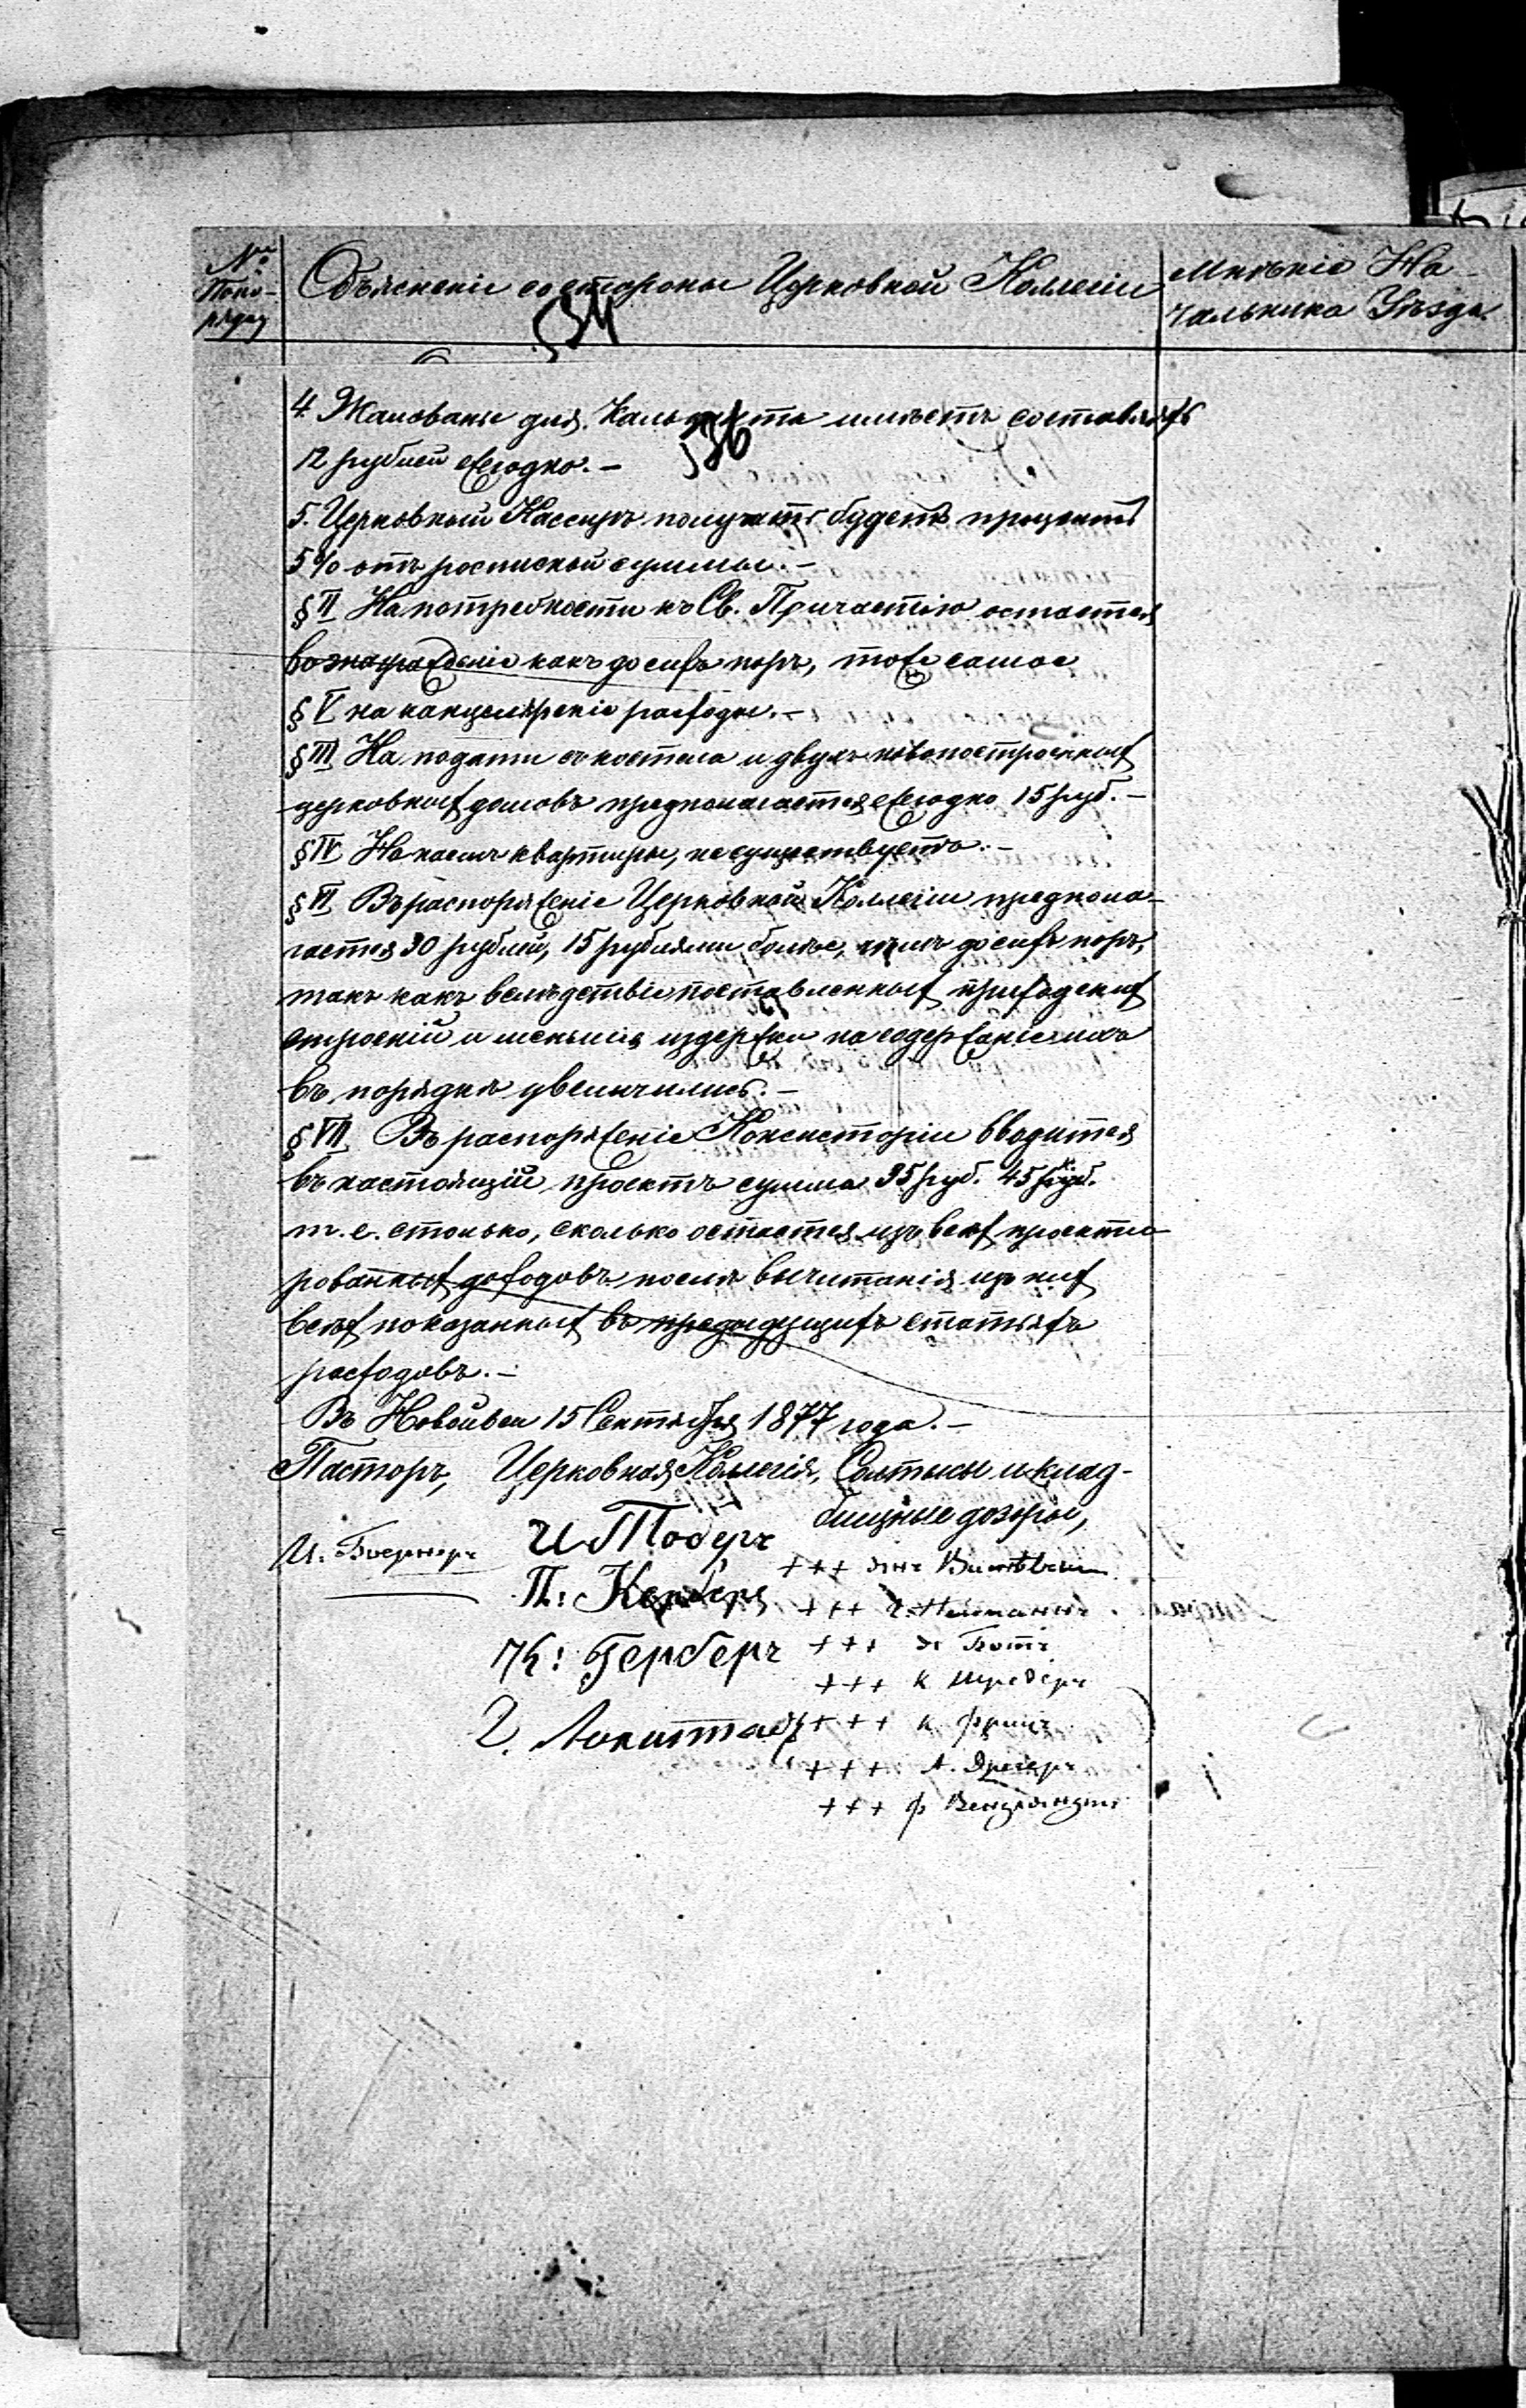 №
Попо-
рядку
Объясненіе со стороны Церковной Коллегіи
Мнѣніе На-
чальника Уѣзда
534
4. Жалованье для Кальканта имѣетъ составлять
536
12 рублей ежегодно.-
5. Церковный Кассиръ получать будетъ проценты
5% отъ росписной суммы.-
§ II На потребности къ Св. Причастію остается
вознагражденіе какъ до сихъ поръ, тоже самое
§ V на канцелярскіе расходы.-
§ III На подати съ костела и двухъ новопостроенныхъ
церковныхъ домовъ предполагается ежегодно 15 руб.-
§ IV На наемъ квартиры, не существуетъ.-
§ VI Въ распоряженіе Церковной Коллегіи предпола-
гается 30 рублей, 15 рублями болѣе, чѣмъ до сихъ поръ,
такъ какъ вслѣдствіе поставленныхъ приходскихъ
строеній и меньшія издержки на содержаніе ихъ
въ порядкѣ увеличились.-
§ VII Въ распоряженіе Консисторіи вводится
въ настоящій проектъ сумма 35 руб. 45
т. е. столько, сколько остается изъ всѣхъ проекти-
рованныхъ доходовъ послѣ вычитанія изъ нихъ
всѣхъ показанныхъ въ предыдущихъ статьяхъ
расходовъ.-
Въ Новойвси 15 Сентября 1877 года.-
Пасторъ, Церковная Коллегія, Солтысы и клад-
бищные дозоры,
И. Бернеръ И Тоберъ
+++
П: Керберъ
+++ Г. Нейманнъ
К: Герберъ
+++ Ботъ
+++ К Шредеръ
Г.
+++ К Фрицъ
+++ А. Дрегеръ
+++ Ф Вендляндтъ